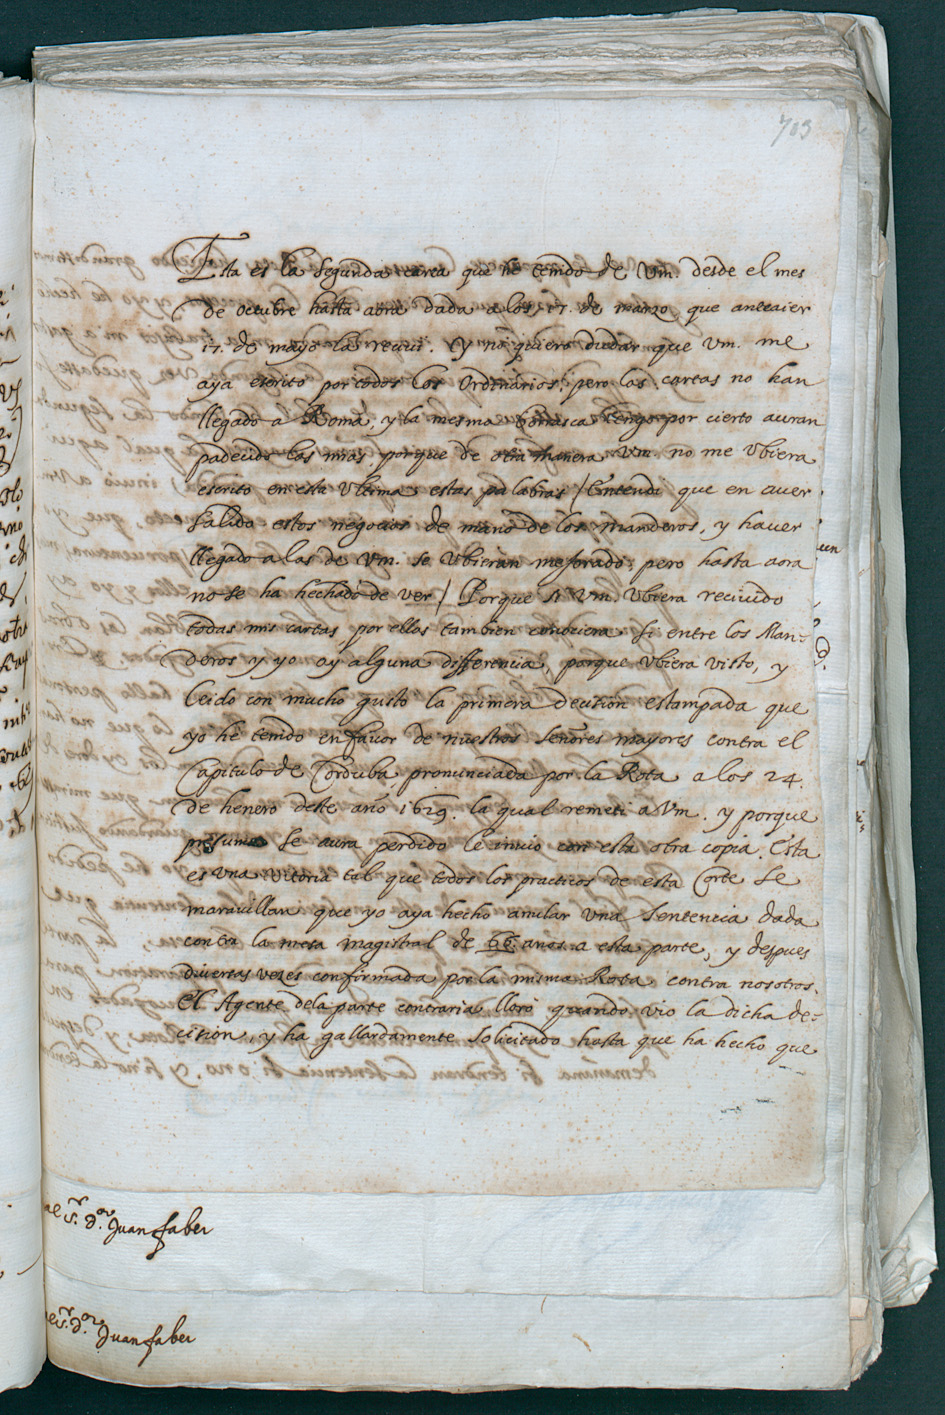 703
Esta es la segunda carta que he tenido de Vm. desde el mes
de octubre hasta aora dada a los 17. de marzo que anteaier
17. de mayo la reciui. Y no quiero dudar que Vm. me
aya escrito por todos los Ordinarios, pero las cartas no han
llegado a Roma, y la mesma borrasca tengo por cierto auran
padecido las mias porque de otra manera Vm. no me Vbiera
escrito en esta Vltima estas palabras / Entendi que en auer
salido estos negocios de mano de los manderos, y hauer
llegado a las de Vm. se Vbieran mejorado; pero hasta aora
no se ha hechado de ver / Porque si Vm. Vbiera reciuido
todas mis cartas por ellas tambien conociera si entre los Man-
deros y yo ay alguna differencia, porque Vbiera visto, y
leido con mucho gusto la primera decision estampada que
yo he tenido en fauor de nuestros señores mayores contra el
Capitulo de Corduba, pronunciada por la Rota a los 24.
de henero deste año 1629. la qual remeti a Vm. y porque
presumo se aura perdido le inuio con esta otra copia. Esta
es Vna vitoria tal que todos los practicos de esta Corte se
marauillan que yo aya hecho anular Vna sentencia dada
contra la mesa magistral de 66 años a esta parte, y despues
diuersas vezes confirmada por la misma Rota contra nosotros.
El Agente dela parte contraria lloro quando vio la dicha de-
cision, y ha gallardamente solicitado hasta que ha hecho que
al S.r D.or Juan faber
S.r D.or Juan faber